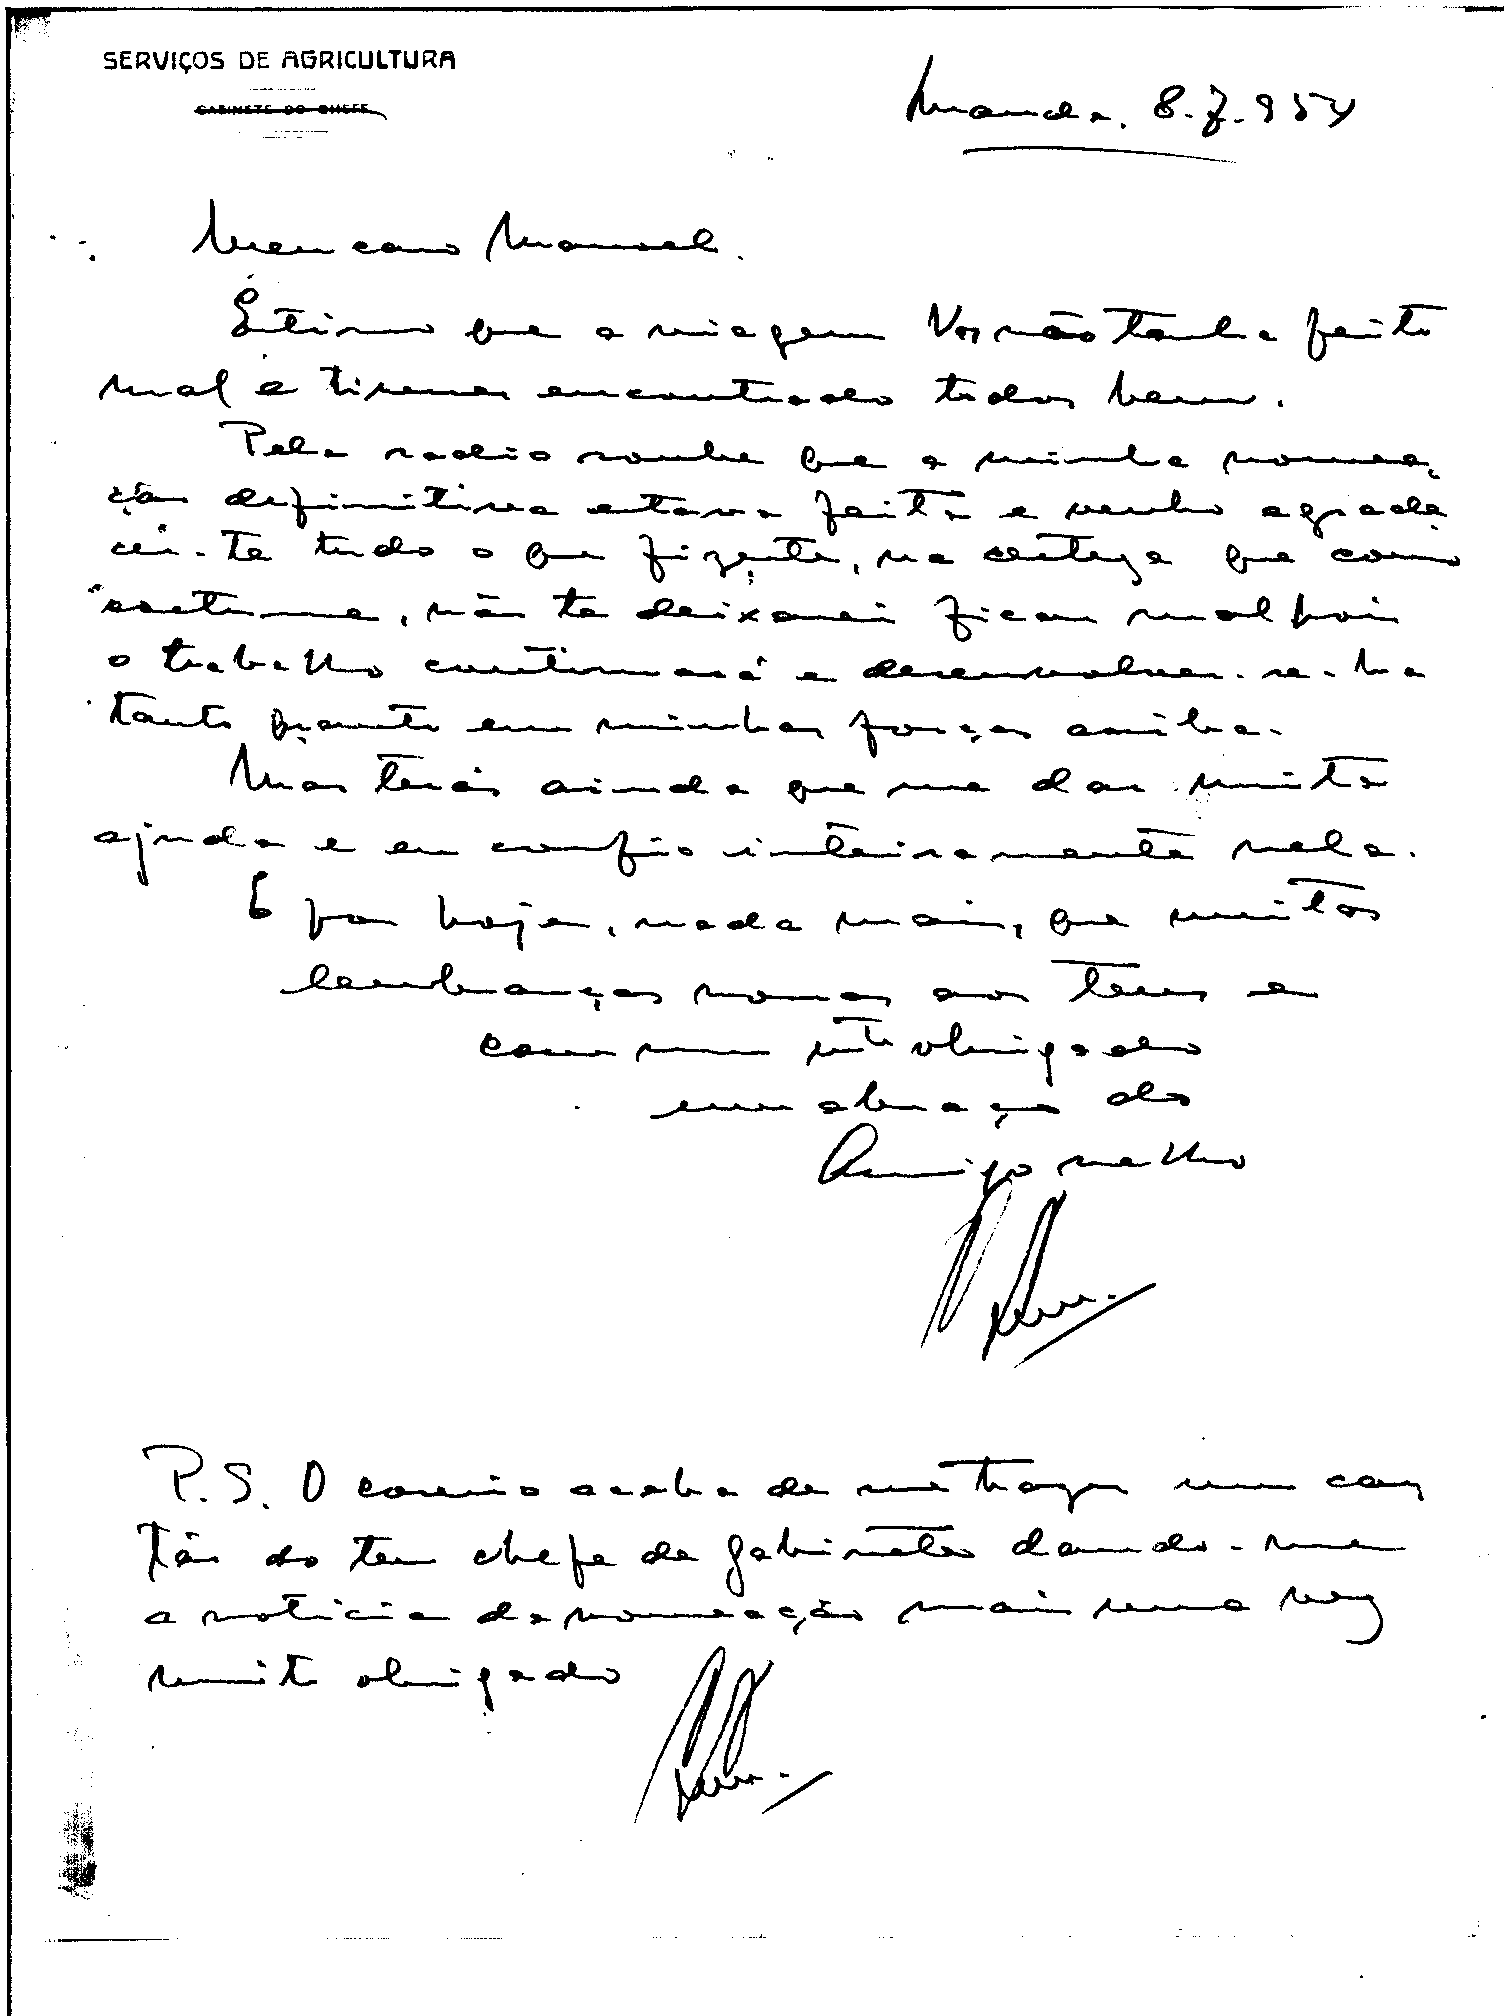 SERVIÇOS DE AGRICULTURA
GABINETE DO CHEFE
Luanda. 8-7-954
Meu caro Manoel.
Estimo que a viagem vos não tenha feito
mal e tivesses encontrado todos bem.
Pela radio soube que a minha nomea-
ção definitiva estava feita e venho agrade
cer-te tudo o que fizeste, na certeza que como
sectme, não te deixarei ficar mal pois
o trabalho continuará e desenvolver-se-ha
tanto quanto em minhas forças caiba.
Mas terás ainda que me dar muita
ajuda e eu confio inteiramente nela.
E por hoje, nada mais, que muitas
lembranças nossas aos teus e
com um mto obrigado
um abraço do
Amigo velho
P.S. O correio acaba de me trazer um car
tão do teu chefe de gabinete dando-me
a noticia da nomeação mais uma vez
muito obrigado